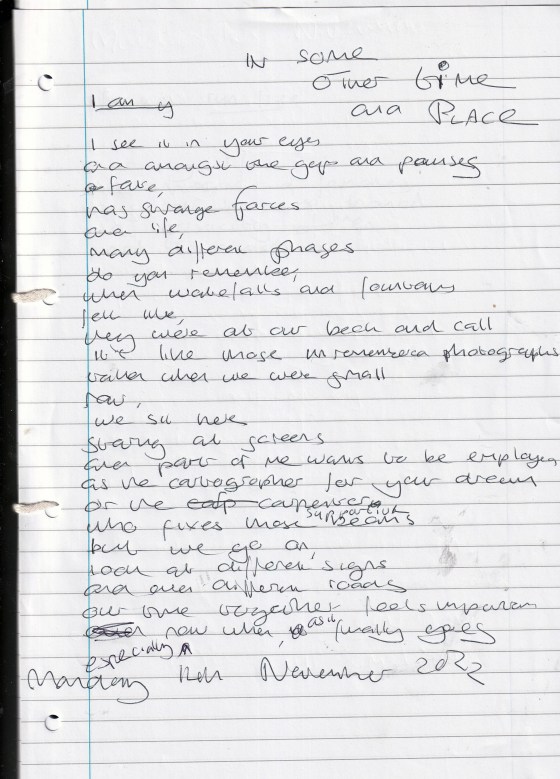 IN SOME
OTHER TIME
and PLACE
I am y
I see it in your eyes
and amongst the gaps and pauses
a fate,
has strange forces
and life,
many different phases
do you remember,
when waterfalls and fountains
fell like,
they were at our beck and call
it's like those unremembered photographs
taken when we were small
now,
we sit here
staring at screens
and part of me wants to be employed
as the cartographer for your dream
or the carpenter
who fixes those supportive beams
but we go on,
look at different signs
and over different roads
our time together feels important
especially now when, as it finally goes
Monday November 2022